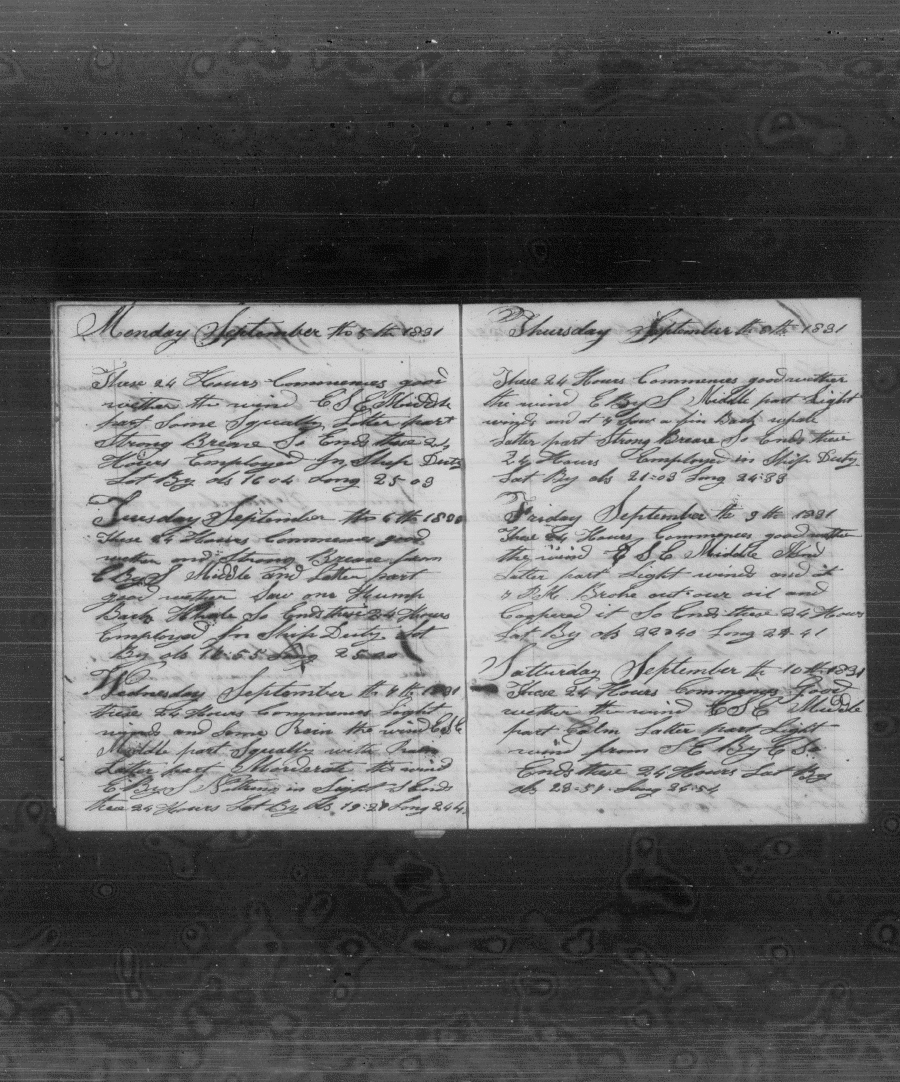 Monday September the 5th 1881
These 24 Hours Commences good
wether the wind E S E Middle
part Some Squalty Latter part
Strong Breaze So Ends these 24
Hours Employed In Ship Duty
Lat By obs 16 04 Long 25-03
Tuesday September the 6th 1880
These 24 Houres Commences good
wether and Strong Breaze from
E By S Middle and Latter part
good wether Saw one Hump
Back Whale So Ends these 24 Hours
Employed in Ship Duty Lat
By obs 18-55 Long 25-20
Wednesday September the 7th 1881
these 24 Hours Commences Light
winds and some Rain the wind E S E
Middle part Squalty with Rain
Latter part Murderate the wind
E By S Nothing in Sight So Ends
these 24 Hours Lat By obs 19-27 Long 24 4
Thursday September the 8th 1881
These 24 Hours Commences good wether
the wind E By S Middle part Light
winds and at 4 Saw a fin Back whale
Latter part Strong Breaze So Ends these
24 Hours Employed in Ship Duty
Lat By obs 21-03 Long 24-33
Friday September the 9th 1881
These 24 Houres Commences good wether
the wind E S E Middle And
Latter part Light winds and at
4 P.M Broke out our oil and
Coopered it So Ends these 24 Hours
Lat By obs 22=40 Long 24-41
Satturday September the 10th 1881
These 24 Hours Commences good
wether the wind E S E Middle
part Calm Latter part Light
wind from S E By E So
Ends these 24 Hours Lat By
obs 23-51 Long 24-54